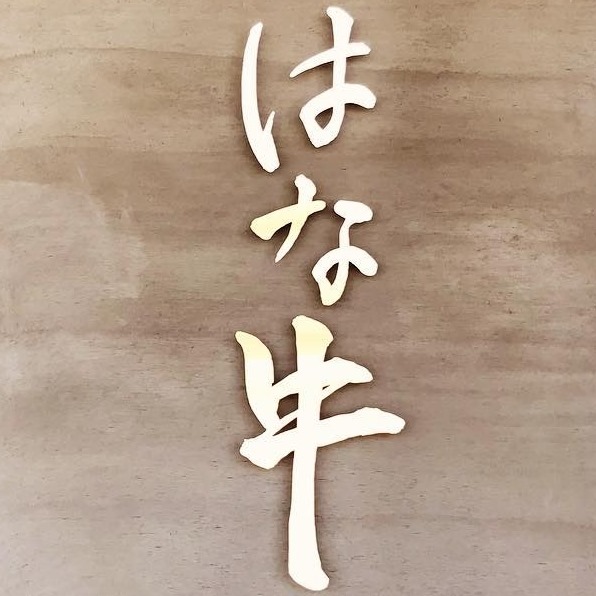 はな牛